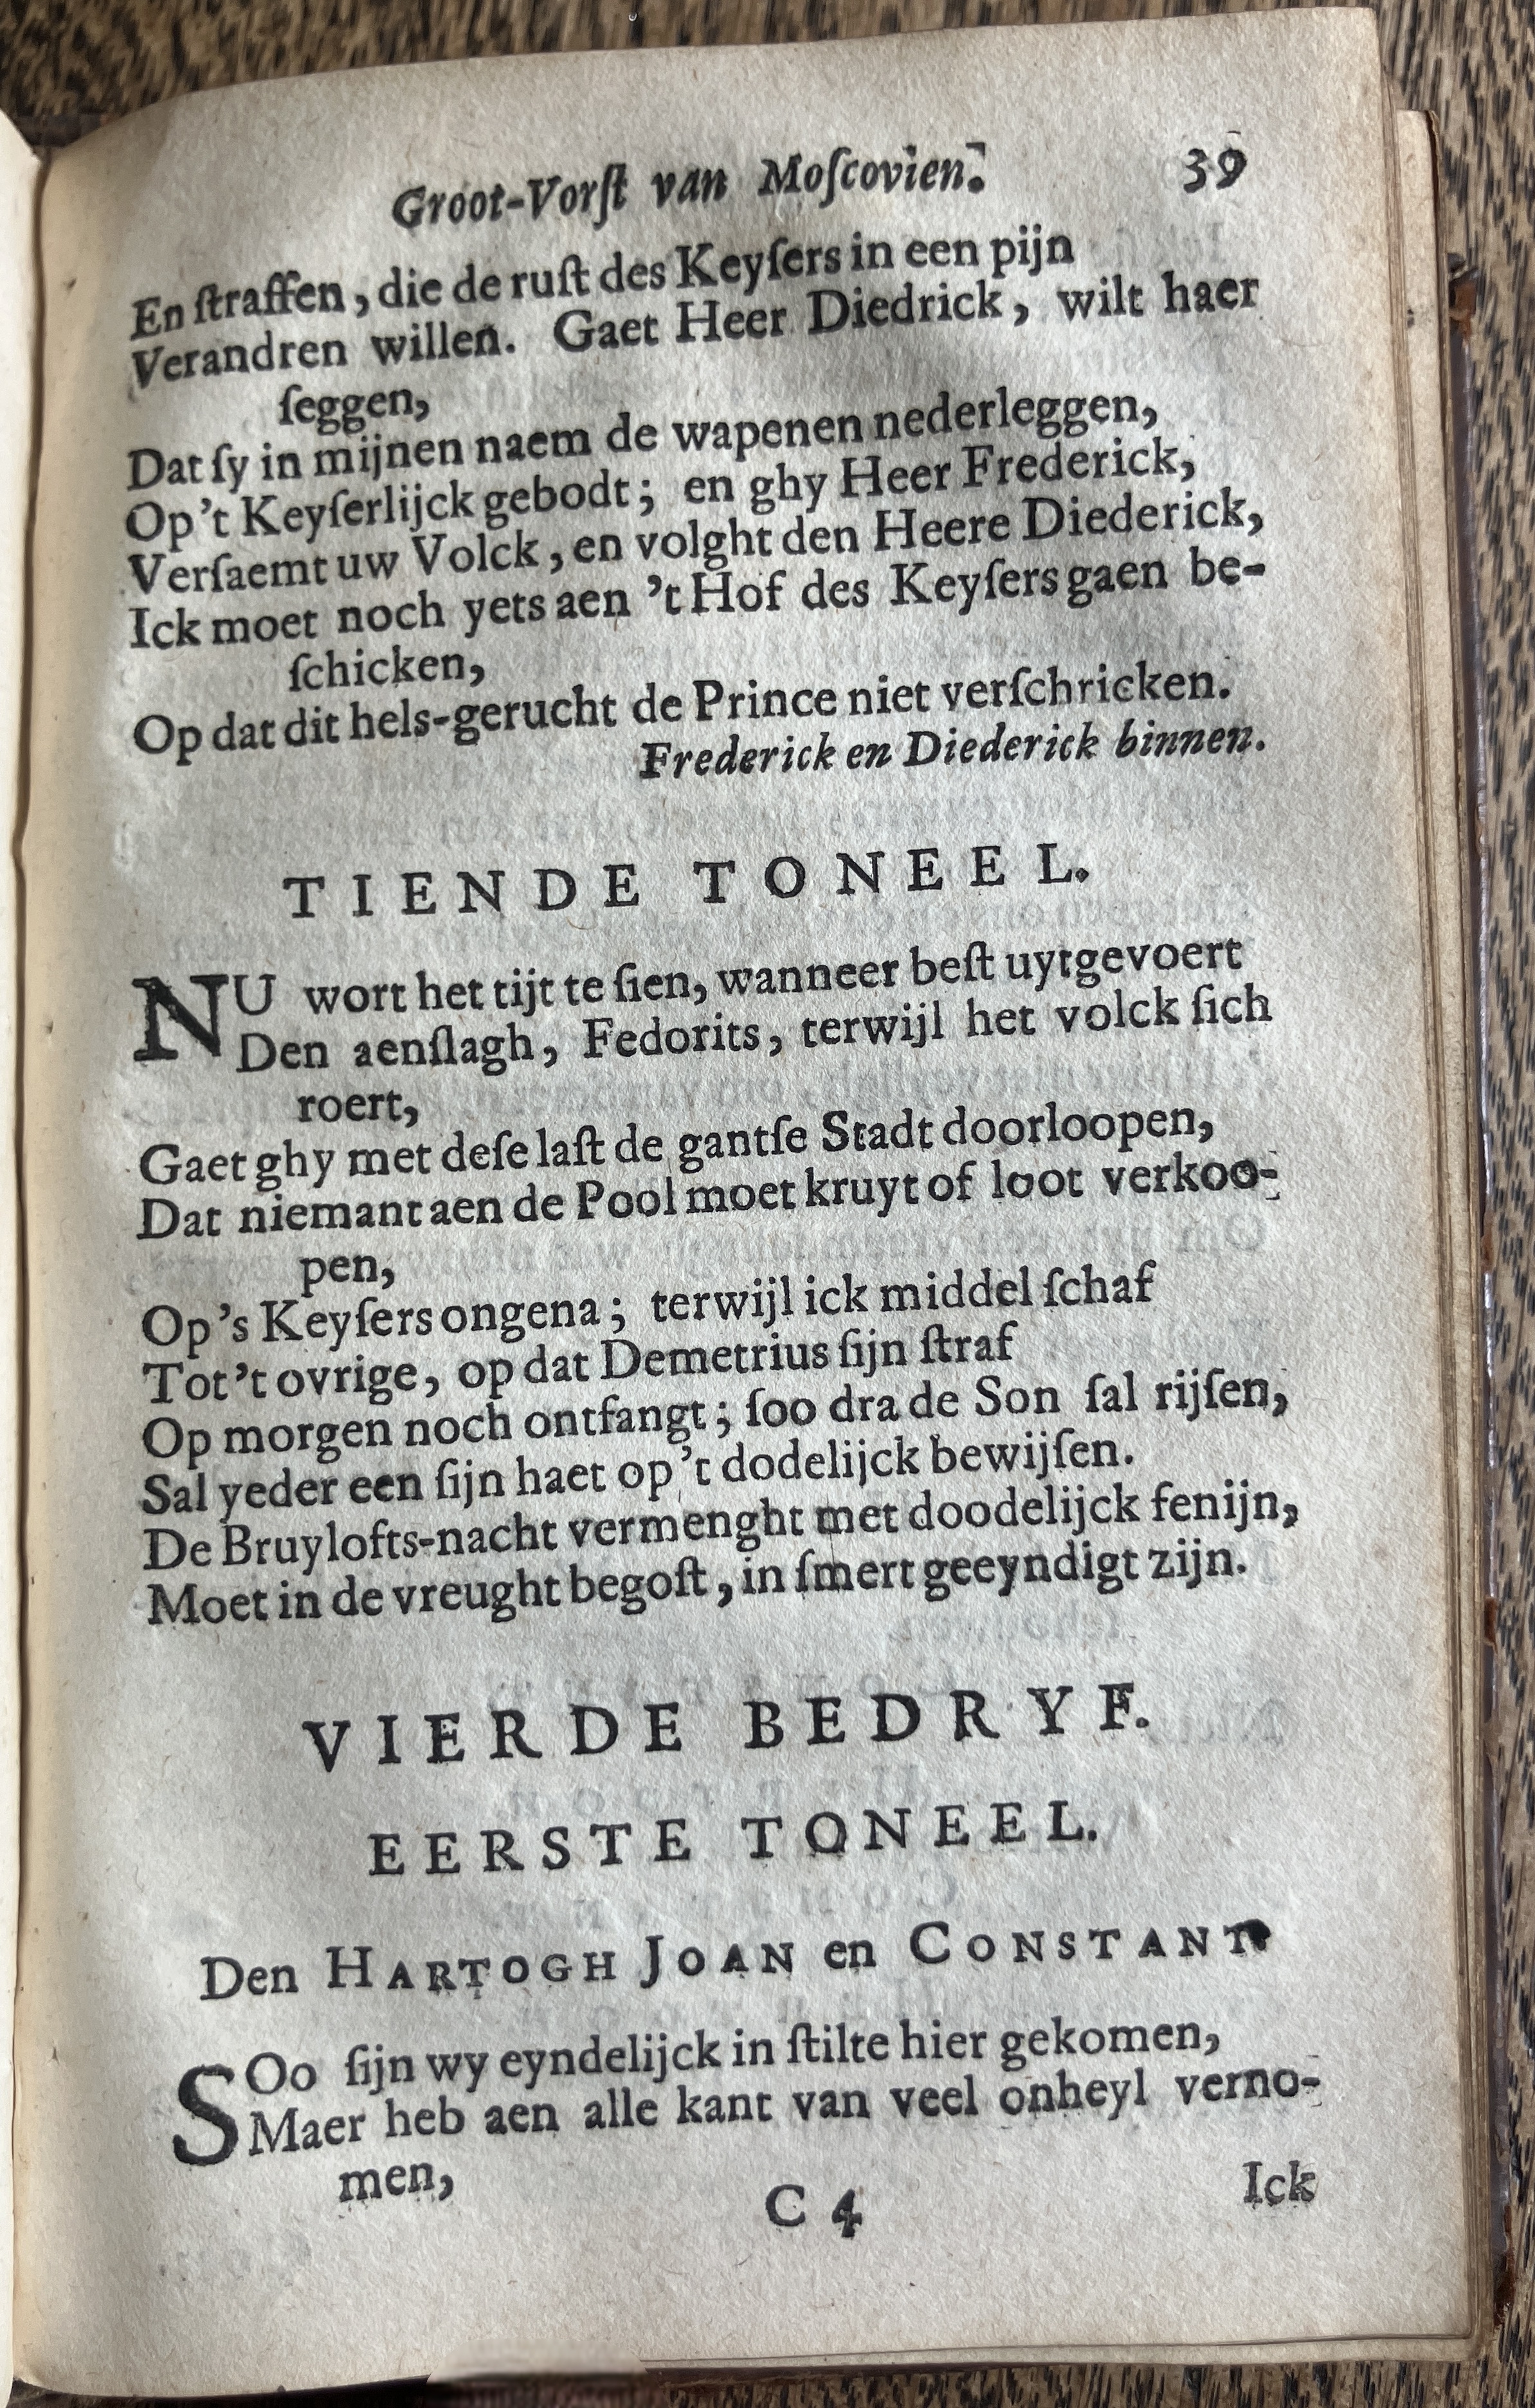 Groot-Vorſt van Moſcovien. 39
En ſtraffen, die de ruſt des Keyſers in een pijn
Verandren willen. Gaet Heer Diedrick, wilt haer
ſeggen,
Dat ſy in mijnen naem de wapenen nederleggen,
Op 't Keyſerlijck gebodt; en ghy Heer Frederick,
Verſaemt uw Volck, en volght den Heere Diederick,
Ick moet noch yets aen 't Hof des Keyſers gaen be-
ſchicken,
Op dat dit hels-gerucht de Prince niet verſchricken.
Frederick en Diederick binnen.
TIENDE TONEEL.
NU wort het tijt te ſien, wanneer beſt uytgevoert
Den aenſlagh, Fedorits, terwijl het volck ſich
roert,
Gaet ghy met deſe laſt de gantſe Stadt doorloopen,
Dat niemant aen de Pool moet kruyt of loot verkoo-
pen,
Op 's Keyſers ongena; terwijl ick middel ſchaf
Tot 't ovrige, op dat Demetrius ſijn ſtraf
Op morgen noch ontfangt; ſoo dra de Son ſal rijſen,
Sal yeder een ſijn haet op 't dodelijck bewijſen.
De Bruylofts-nacht vermenght met doodelijck fenijn,
Moet in de vreught begoſt, in ſmert geeyndigt zijn.
VIERDE BEDRYF.
EERSTE TONEEL.
Den HARTOGH JOAN en CONSTANT
SOo ſijn wy eyndelijck in ſtilte hier gekomen,
Maer heb aen alle kant van veel onheyl verno-
men,
C 4 Ick